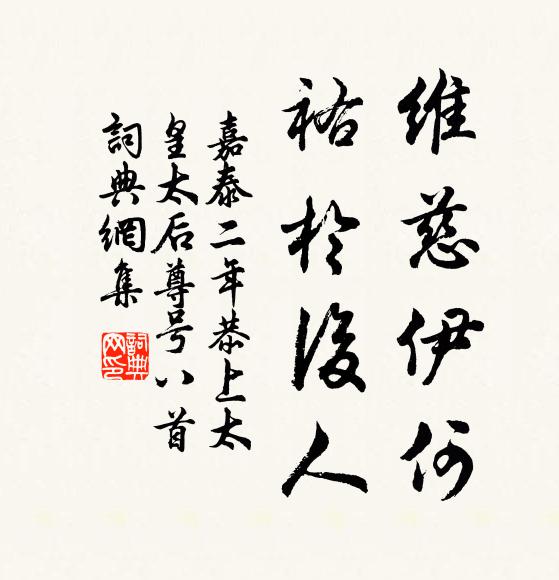 維慈伊何
祐於後人
嘉泰二年恭上太
皇太后尊号八首
詞典網集
詞典网印